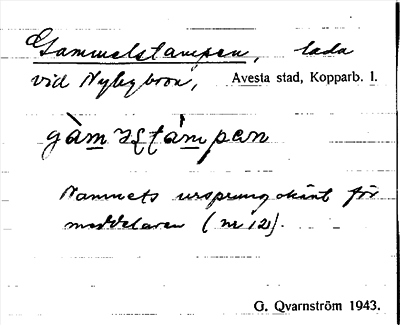 Gammelstampen, lada
vid Nybybron, Avesta stad, Kopparb. l.
gàməstàmpən
Namnets ursprung okänt för
meddelaren (nr 12).
G. Qvarnström 1943.